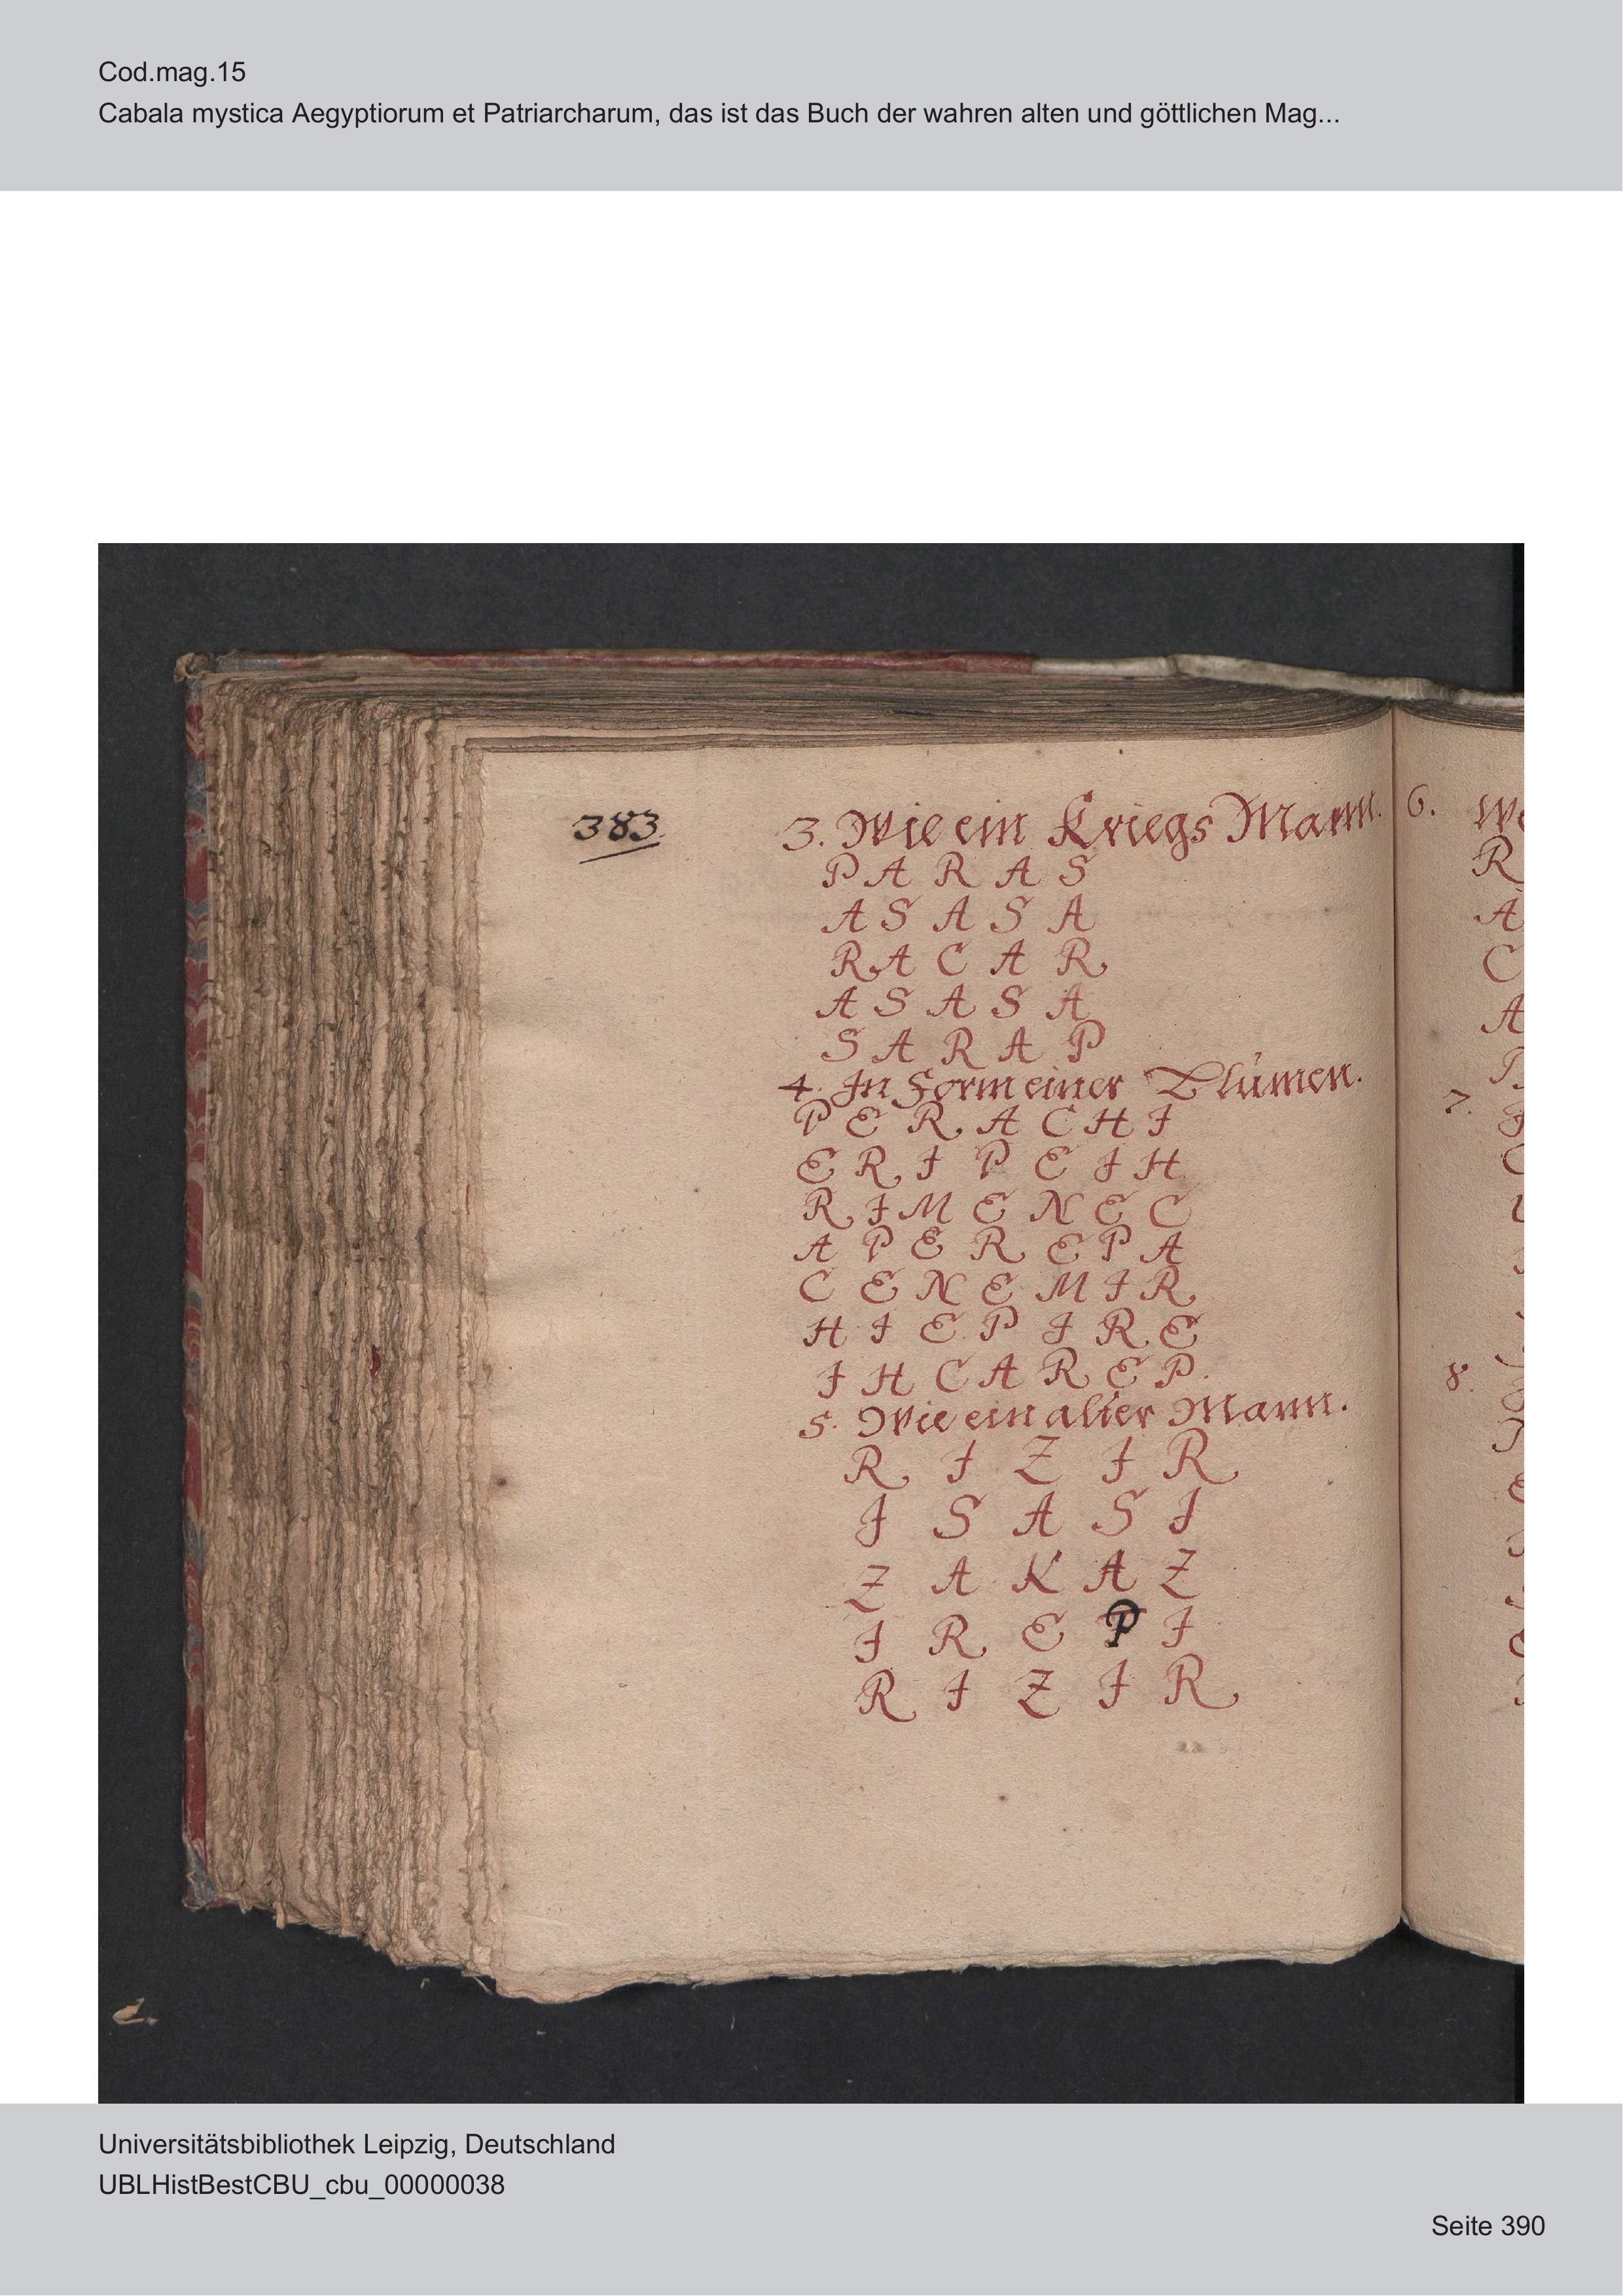 Cod.mag.15
Cabala mystica Aegyptiorum et Patriarcharum, das ist das Buch der wahren alten und göttlichen Mag...
383.
3. Wie ein Kriegs Mann.
P A R A S
A S A S A
R A C A R
A S A S A
S A R A P
4. In Form einer Blumen.
P E R A C H I
E R I P E I H
R I M E N E C
A P E R E P A
C E N E M I R
H I E P I R E
I H C A R E P.
5. Wie ein alter Mann.
R I Z I R
I S A S I
Z A K A Z
I R E P I
R I Z I R
6.
R
A
C
A
7.
8.
Universitätsbibliothek Leipzig, Deutschland
UBLHistBestCBU_cbu_00000038
Seite 390